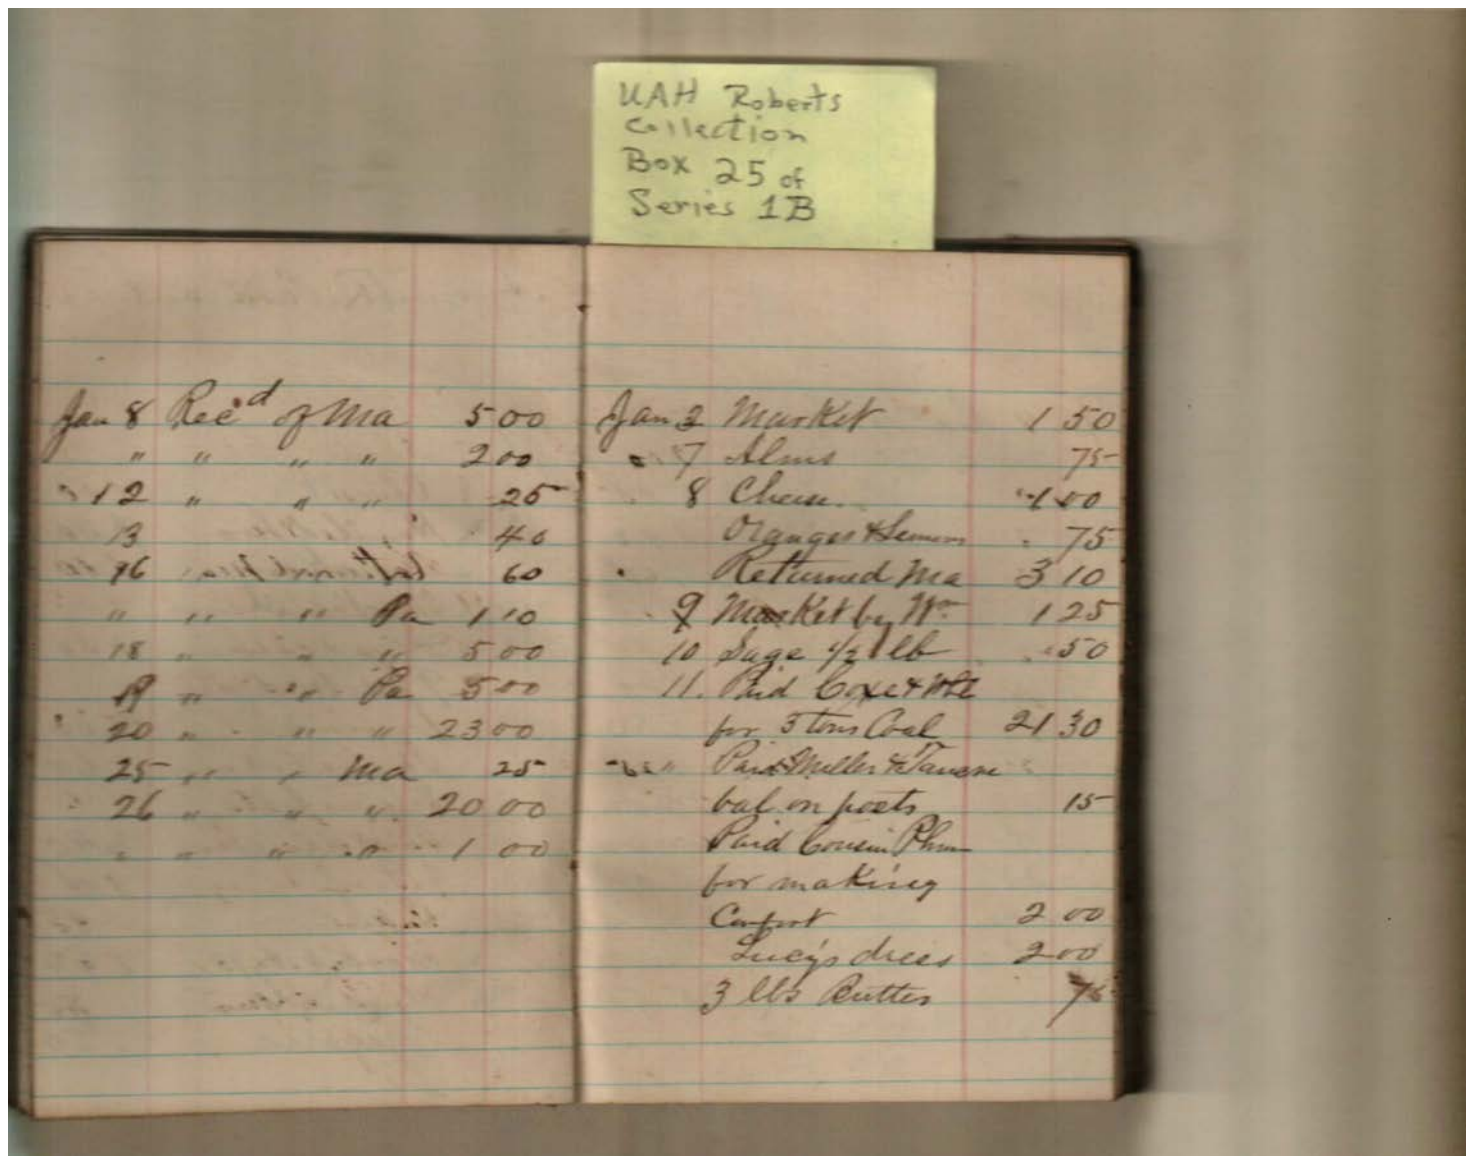 UAH Roberts
Collection
Box 25 of
Series 1B
Jan 8 Rec'd of Ma 5 00
" " " " 2 00
12 " " " 25
13 40
16 60
" " " Pa 1 10
18 " " " 5 00
19 " " Pa 5 00
20 " " " 23 00
25 " " Ma 25
26 " " " 20 00
" " " " 1 00
Jan 2 Market 1 50
" 7 Alms 75
8 1 00
Oranges & Lemons 75
Returned Ma 3 10
9 Market by Wm 1 25
10 Sage 1/2 lb 50
11. Paid Coxe &
for 3 tons Coal 21 30
" Paid Miller &
bal. on posts 15
Paid Cousin
for making
Comfort 2 00
Lucy's dress 2 00
3 lbs Butter 75